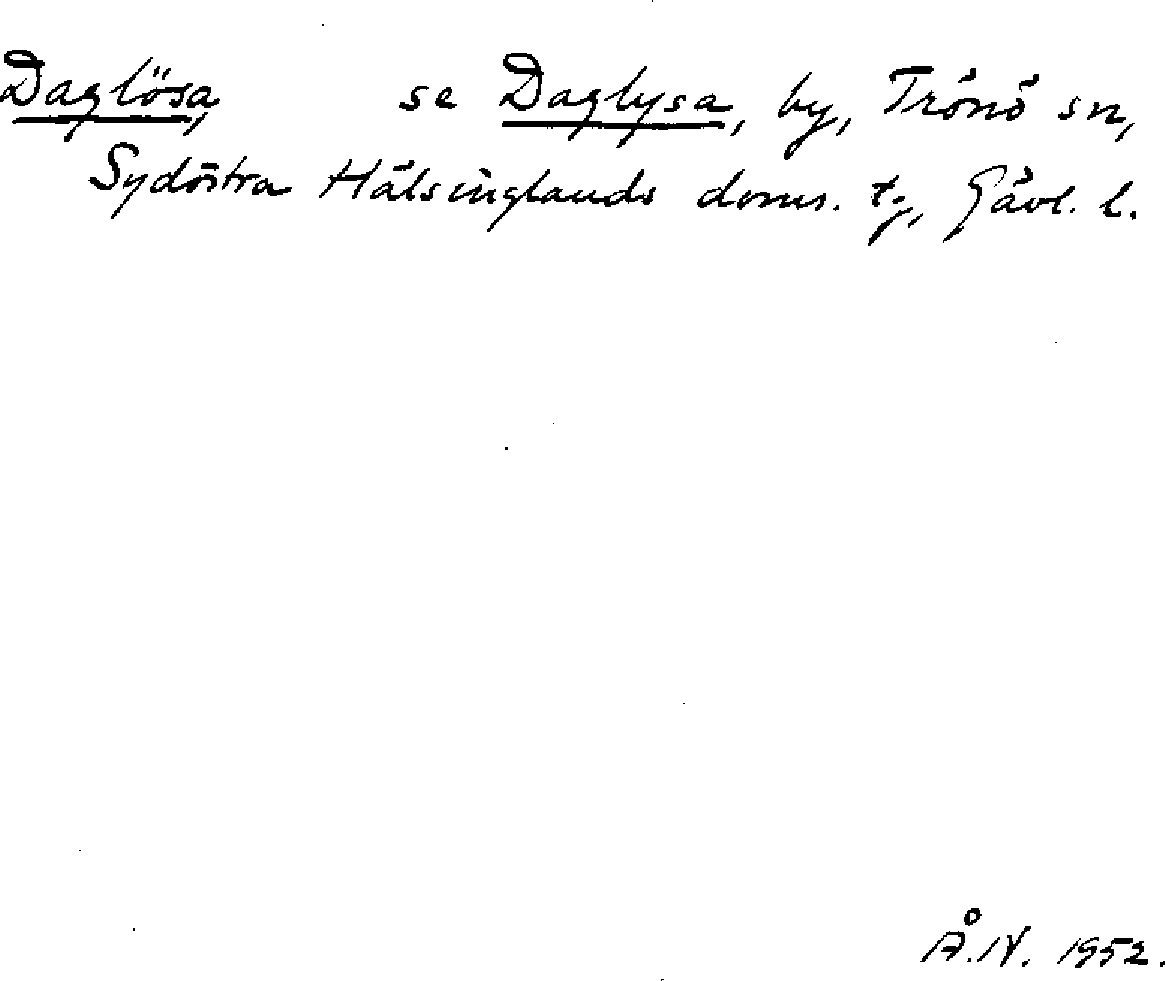 Daglösa, se Daglysa, by, Trönö sn,
Sydöstra Hälsinglands doms. tg, Gävl. l.
Å.N. 1952.